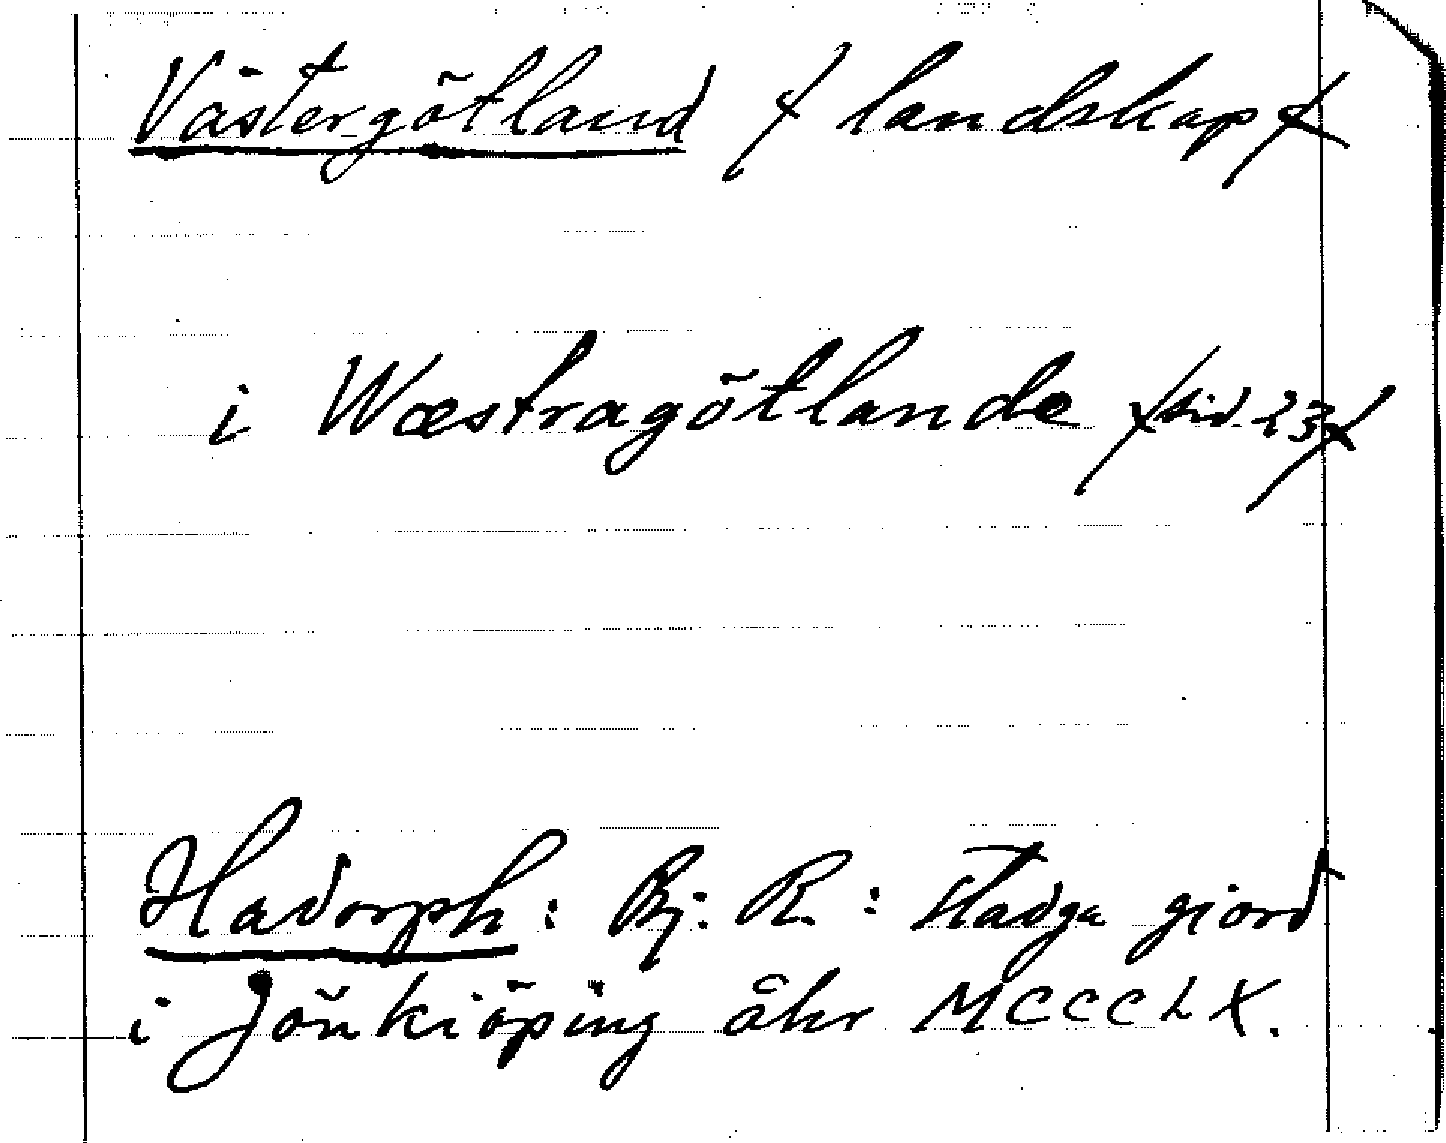 Västergötland / landskap /
i Wæstragötlande / sid. 23 /
Hadorph: Bj. R: Stadga giord
i Jönkiöping åhr MCCCLX.